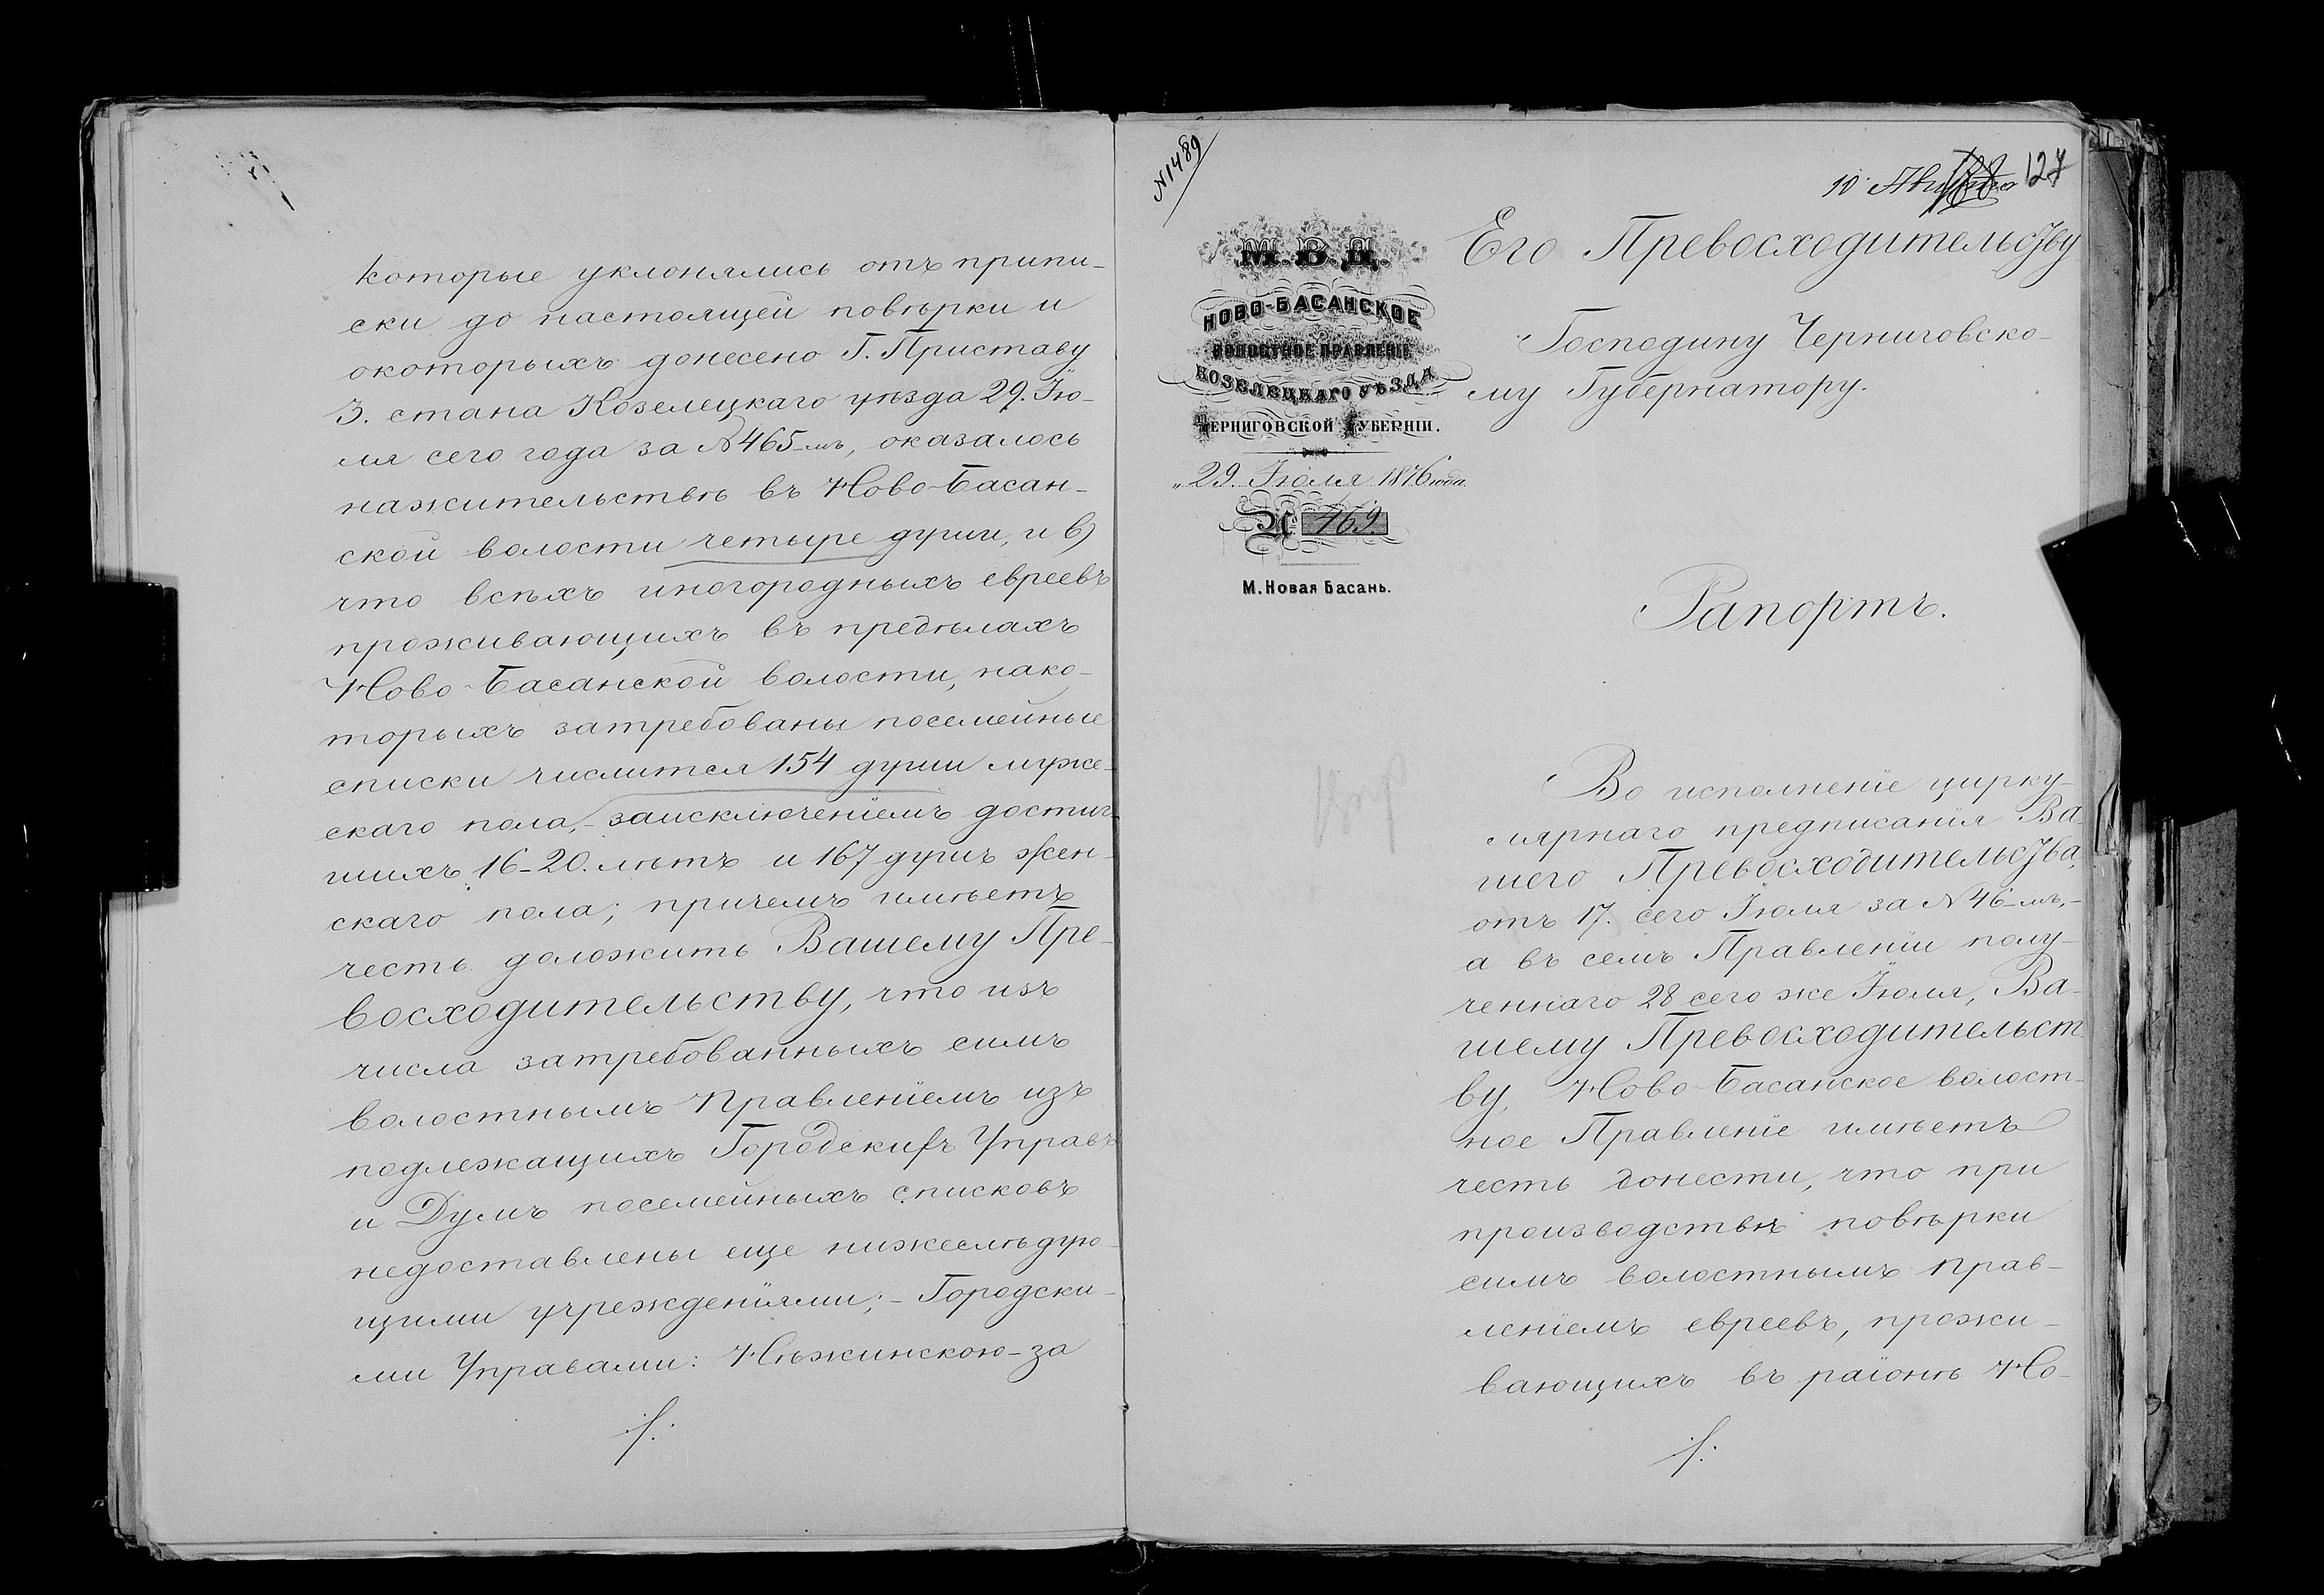 которые уклонялись отъ припи-
ски до настоящей повѣрки и
окоторыхъ донесено Г. Приставу
3. стана Козелецкаго уѣзда 29. Ію-
ля сего года за №465-мъ, оказалось
нажительствѣ въ Ново-Басан-
ской волости четыре души, и в)
что всѣхъ иногородныхъ евреевъ
проживающихъ въ предѣлахъ
Ново-Басанской волости, нако-
торыхъ затребованы посемейные
списки числится 154 души муже-
скаго пола,- заисключеніемъ достиг-
шихъ 16-20. лѣтъ и 167 душъ жен-
скаго пола; причемъ имѣетъ
честь доложить Вашему Пре-
восходительству, что изъ
числа затребованныхъ симъ
волостнымъ Правленіемъ изъ
подлежащихъ Городскихъ Управъ
и Думъ посемейныхъ списковъ
недоставлены еще нижеслѣдую-
щими учрежденіями; - Городски-
ми Управами: Нѣжинскою-за
./.
N1489
10 Августа 127
М.В.Д.
НОВО-БАСАНСКОЕ
ВОЛОСТНОЕ ПРАВЛЕНІЕ
КОЗЕЛЕЦКАГО УѢЗДА
ЧЕРНИГОВСКОЙ ГУБЕРНІИ.
„29. Іюля 1876 года
№ 469
М. Новая Басань.
Его Превосходительству
Господину Черниговско-
му Губернатору.
Рапортъ.
Во исполненіе цирку-
лярнаго предписанія Ва-
шего Превосходительства,
отъ 17. сего Іюля за №46-мъ,-
а въ семъ Правленіи полу-
ченнаго 28 сего же Іюля, Ва-
шему Превосходительст-
ву, Ново-Басанское волост-
ное Правленіе имѣетъ
честь донести, что при
производствѣ повѣрки
симъ волостнымъ Прав-
леніемъ евреевъ, прожи-
вающихъ въ раіонѣ Но-
./.